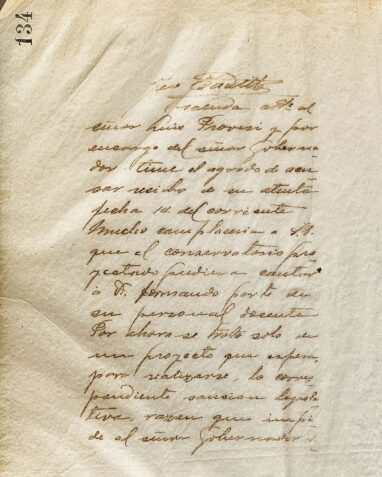 134
saluda att. al
señor Luis Provesi y por
encargo del señor Goberna
dor tiene el agrado de acu
sar recibo de su atenta
fecha 12 del corriente
Mucho complaceria a S.S.
que el conservatorio pro
yectado pudiera contar
á D. formando parte de
su personal docente.
Por ahora se trata solo de
un proyecto que espera,
para realizarse, la corres
pondiente sancion legisla
tiva, razon que impi
de al señor Gobernador